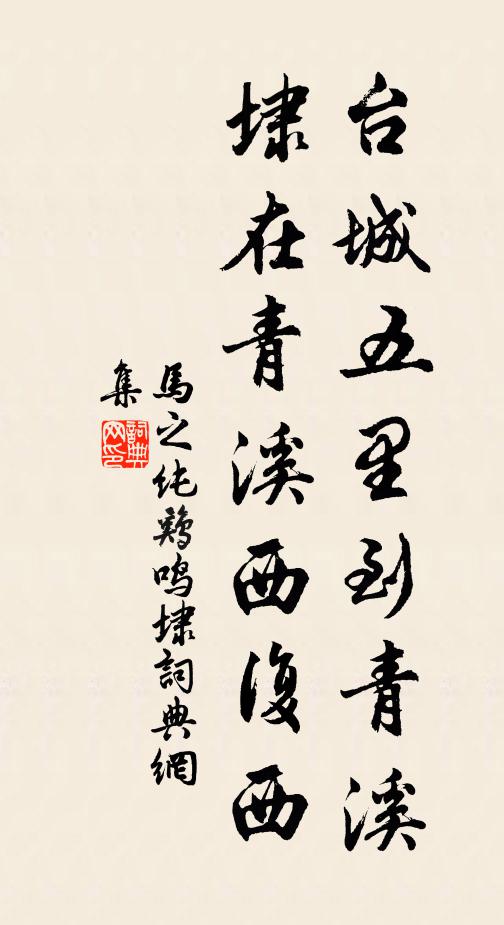 台城五里到青溪
埭在青溪西復西
馬之純鷄鳴埭詞典網
集
詞典
网印